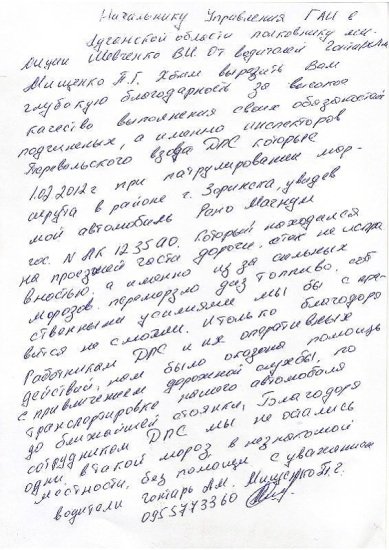 Начальнику Управления ГАИ в
Луганской области полковнику ми-
лиции Шевченко В.И. От водителей Гонтарь А.М.
Мищенко П.Г. Хотим выразить Вам
глубокую благодарность за высокое
качество выполнения своих обязаностей
подчиненых, а именно инспекторов
Перевальского взвода ДПС которые
1.02.2012г при патрулировании мар-
шрута в районе г. Зоринска, увидев
мой автомобиль Рено Магнум
гос. N АК 1235 АО. Который находался
на проезжей части дороги, с тех. не испра
вностью, а именно из за сильных
морозов. перемерзло диз топливо. соб
ственными усилиями мы бы с пра-
вится не смогли. И только благодоря
Работникам ДПС и их оперативных
действий, нам было оказана помощь
с привличением дорожной службы, по
транспортировке нашего автомобиля
до ближайшей стоянки, Благодоря
сотрудником ДПС мы не остались
одни в такой мороз в незнакомой
местности, без помощи с уважением
водители Гонтарь А.М. Мищенко П.Г.
0955773360